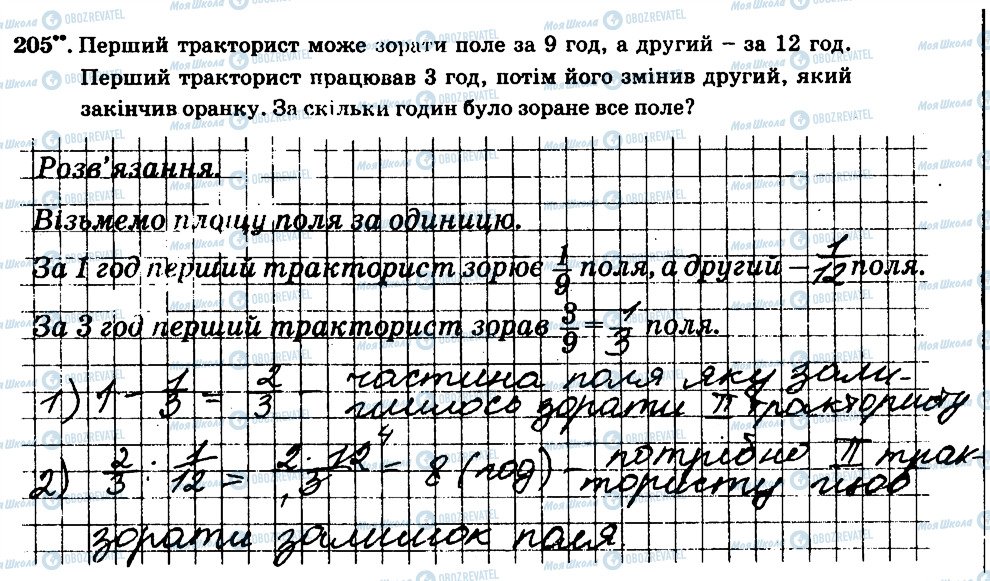 205**. Перший тракторист може зорати поле за 9 год, а другий – за 12 год.
Перший тракторист працював 3 год, потім його змінив другий, який
закінчив оранку. За скільки годин було зоране все поле?
Розв'язання.
Візьмемо площу поля за одиницю.
За 1 год перший тракторист зорює 1/9 поля, а другий – 1/12 поля.
За 3 год перший тракторист зорав 3/9 = 1/3 поля.
1) 1 - 1/3 = 2/3 - частина поля яку зали-
шилось зорати II трактористу
2) 2/3 : 1/12 = 2·12/3 4 = 8 (год) - потрібно II трак-
тористу щоб
зорати залишок поля.